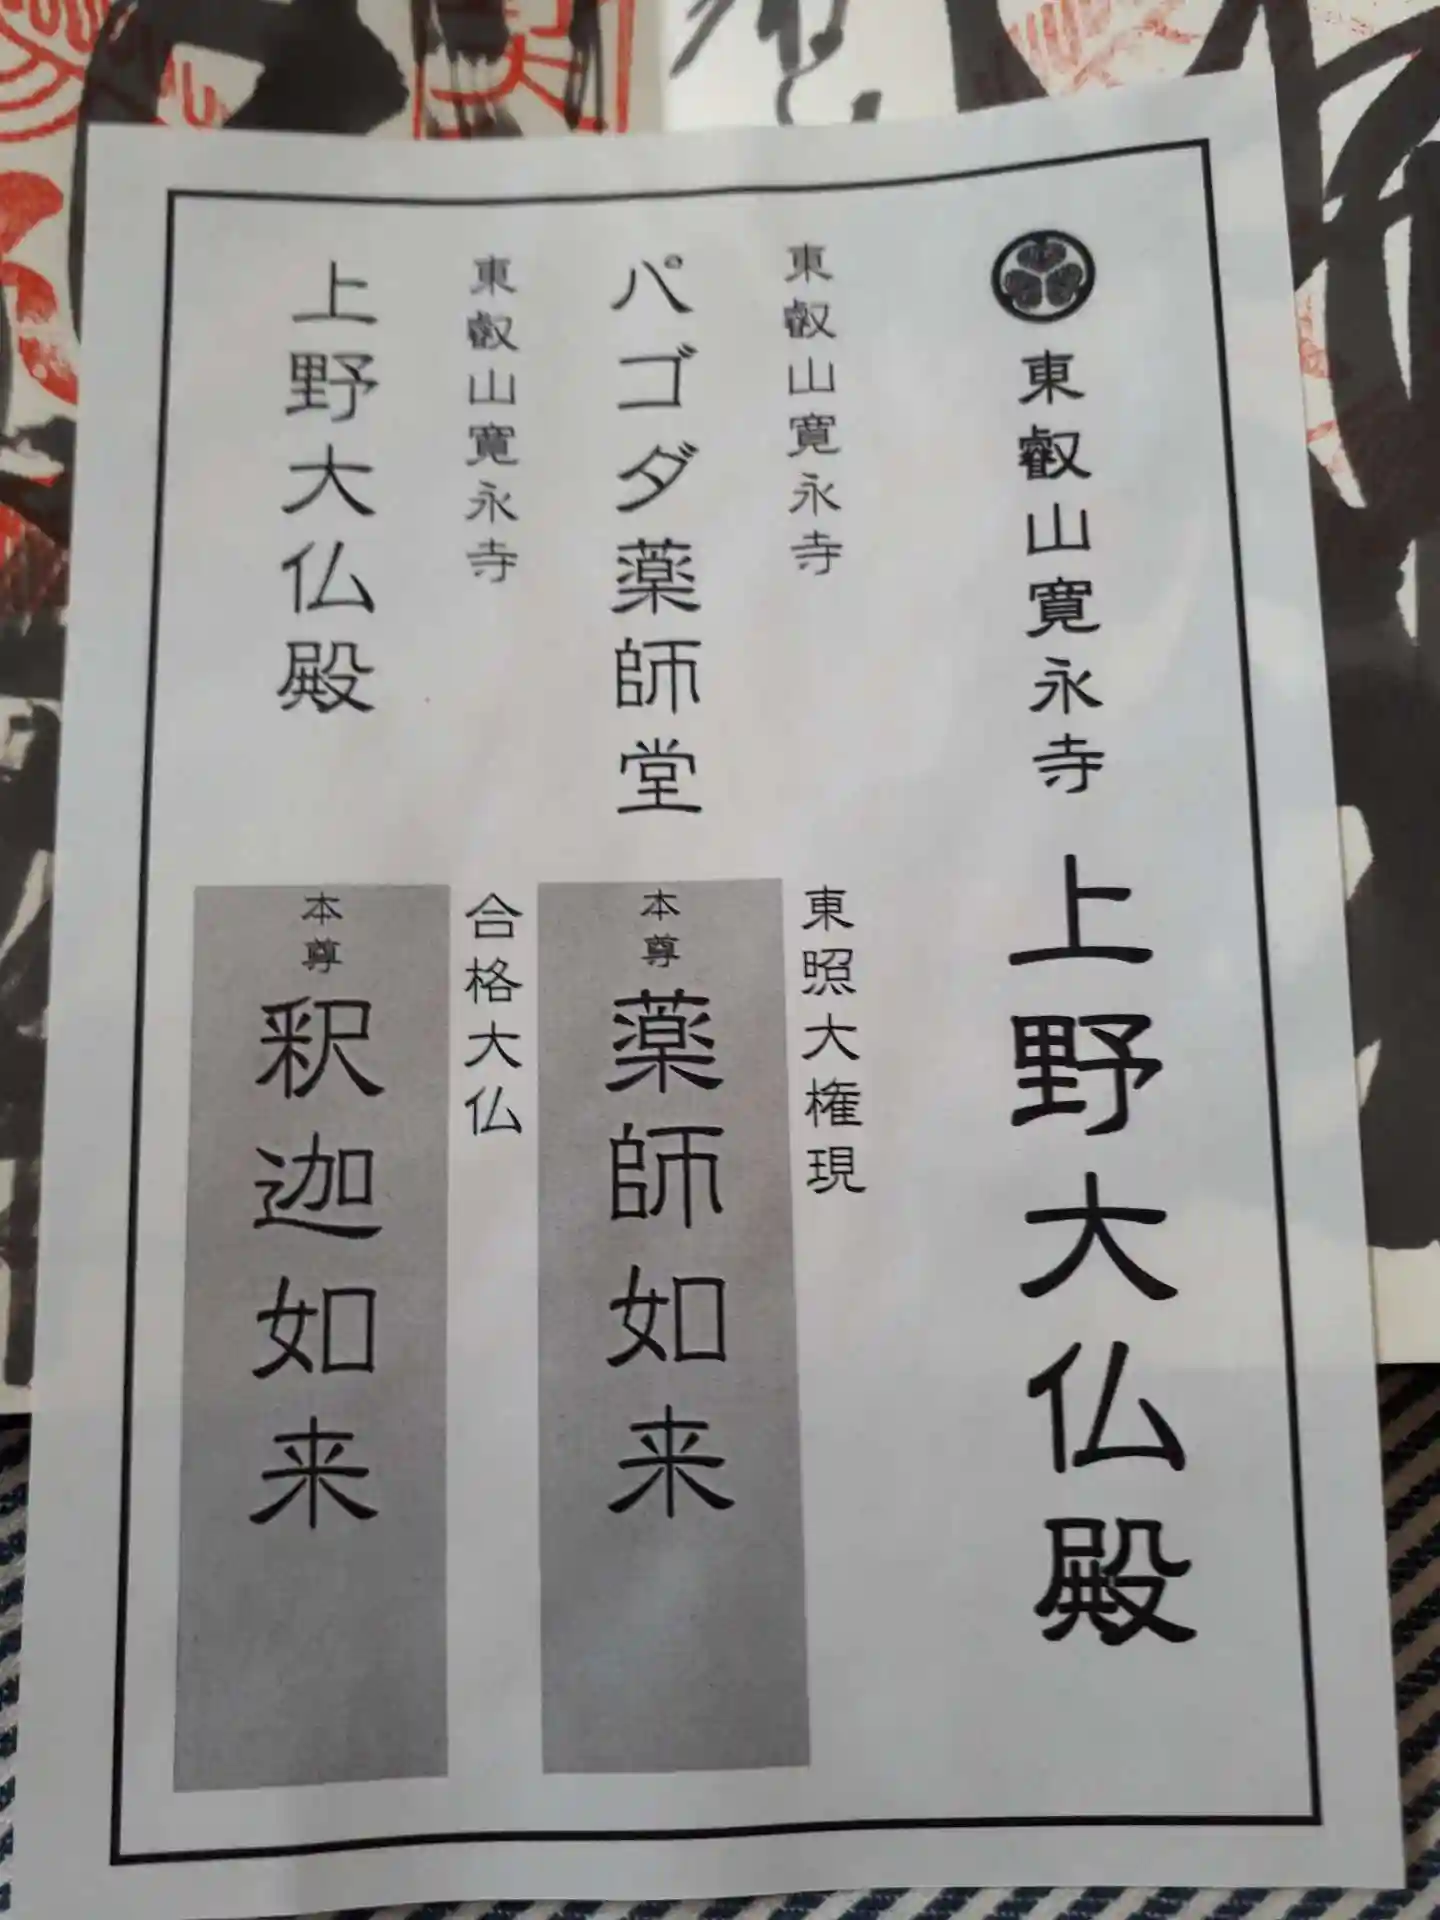 東叡山寛永寺 上野大仏殿
東叡山寛永寺
パゴダ薬師堂
東照大権現
本尊 薬師如来
東叡山寛永寺
上野大仏殿
合格大仏
本尊 釈迦如来